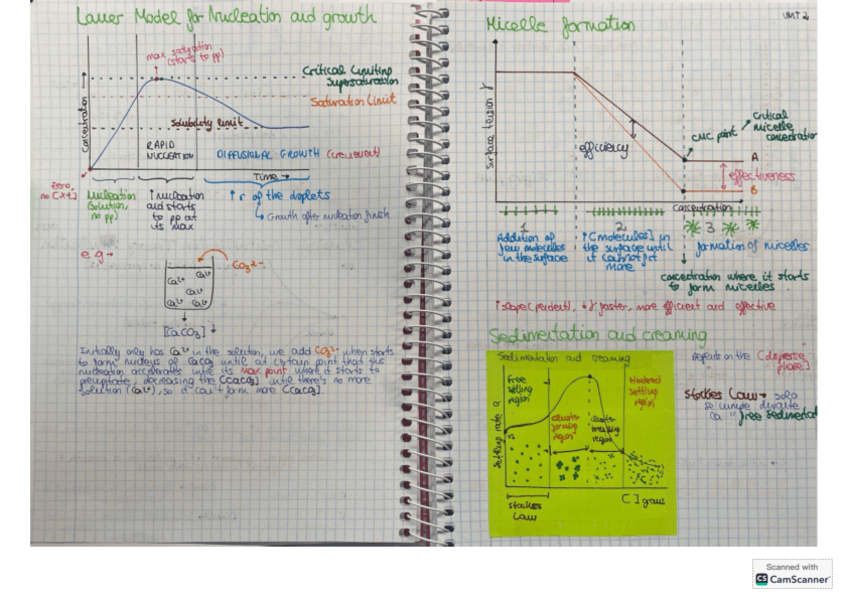 Lamer Model for Nucleation and growth
max saturation
(starts to pp)
Critical Limiting
Supersaturation
Saturation Limit
Concentration
Solubility limit
RAPID
NUCLEATION
DIFFUSIONAL GROWTH
Time →
Zero,
Nucleation
(solution,
no pp)
↑ nucleation
and starts
to pp at
its max
↑ r of the doplets
↳ Growth after nucleation finish
e.g →
CO3²⁻
Ca²⁺ Ca²⁺
Ca²⁺
Ca²⁺ Ca²⁺
[CaCO3] ↓
Initially only has Ca²⁺ in the solution, we add CO3²⁻ when starts
to form nucleus of CaCO3 until at certain point that the
nucleation accelerates until its max point where it starts to
precipitate, decreasing the [CaCO3] until there's no more
solution (Ca²⁺), so it can't form more CaCO3.
UNIT 2
Micelle formation
Surface tension γ
efficiency
CMC point
Critical
micelle
concentration
A
effectiveness
B
Concentration
1
Addition of
few molecules
in the surface
2
↑[molecules] in
the surface until
it cannot get
more
3
formation of micelles
concentration where it starts
to form micelles
↑ slope (pendent), ↓γ faster, more efficient and effective
Sedimentation and creaming
Sedimentation and creaming
Free
settling
region
cluster
forming
region
cluster
breaking
region
Hindered
settling
region
Settling rate
Stockes
Law
[ ] grows
Depends on the [disperse
phase]
Stockes Law → solo
se cumple durante
la "free sedimental
Scanned with
CS CamScanner